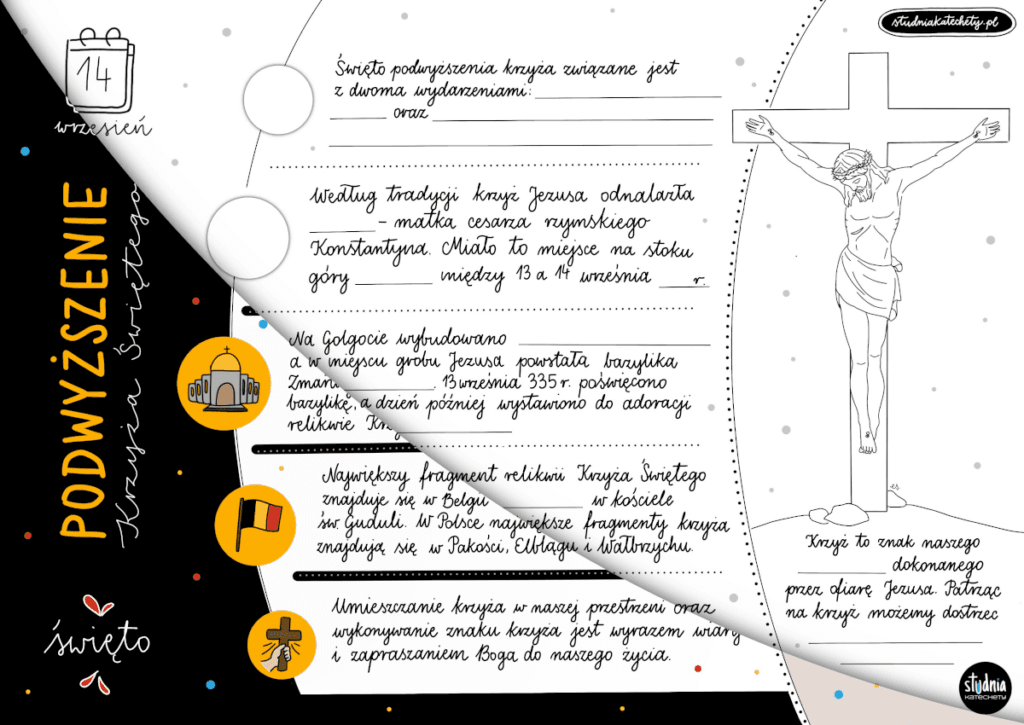 studniakatechety.pl
14
wrzesień
PODWYŻSZENIE
Krzyża Świętego
święto
Święto podwyższenia krzyża związane jest
z dwoma wydarzeniami: ____________
______ oraz ____________
____________
Według tradycji krzyż Jezusa odnalazła
______ - matka cesarza rzymskiego
Konstantyna. Miało to miejsce na stoku
góry ______ między 13 a 14 września ____ r.
Na Golgocie wybudowano ____________
a w miejscu grobu Jezusa powstała bazylika
Zmar ______. 13 września 335 r. poświęcono
bazylikę, a dzień później wystawiono do adoracji
relikwie Krz ____________
Największy fragment relikwii Krzyża Świętego
znajduje się w Belgii ______ w kościele
św. Guduli. W Polsce największe fragmenty krzyża
znajdują się w Pakości, Elblągu i Wałbrzychu.
Umieszczanie krzyża w naszej przestrzeni oraz
wykonywanie znaku krzyża jest wyrazem wiary
i zapraszaniem Boga do naszego życia.
es
Krzyż to znak naszego
______ dokonanego
przez ofiarę Jezusa. Patrząc
na krzyż możemy dostrzec
____________
____________
studnia
KATECHETY